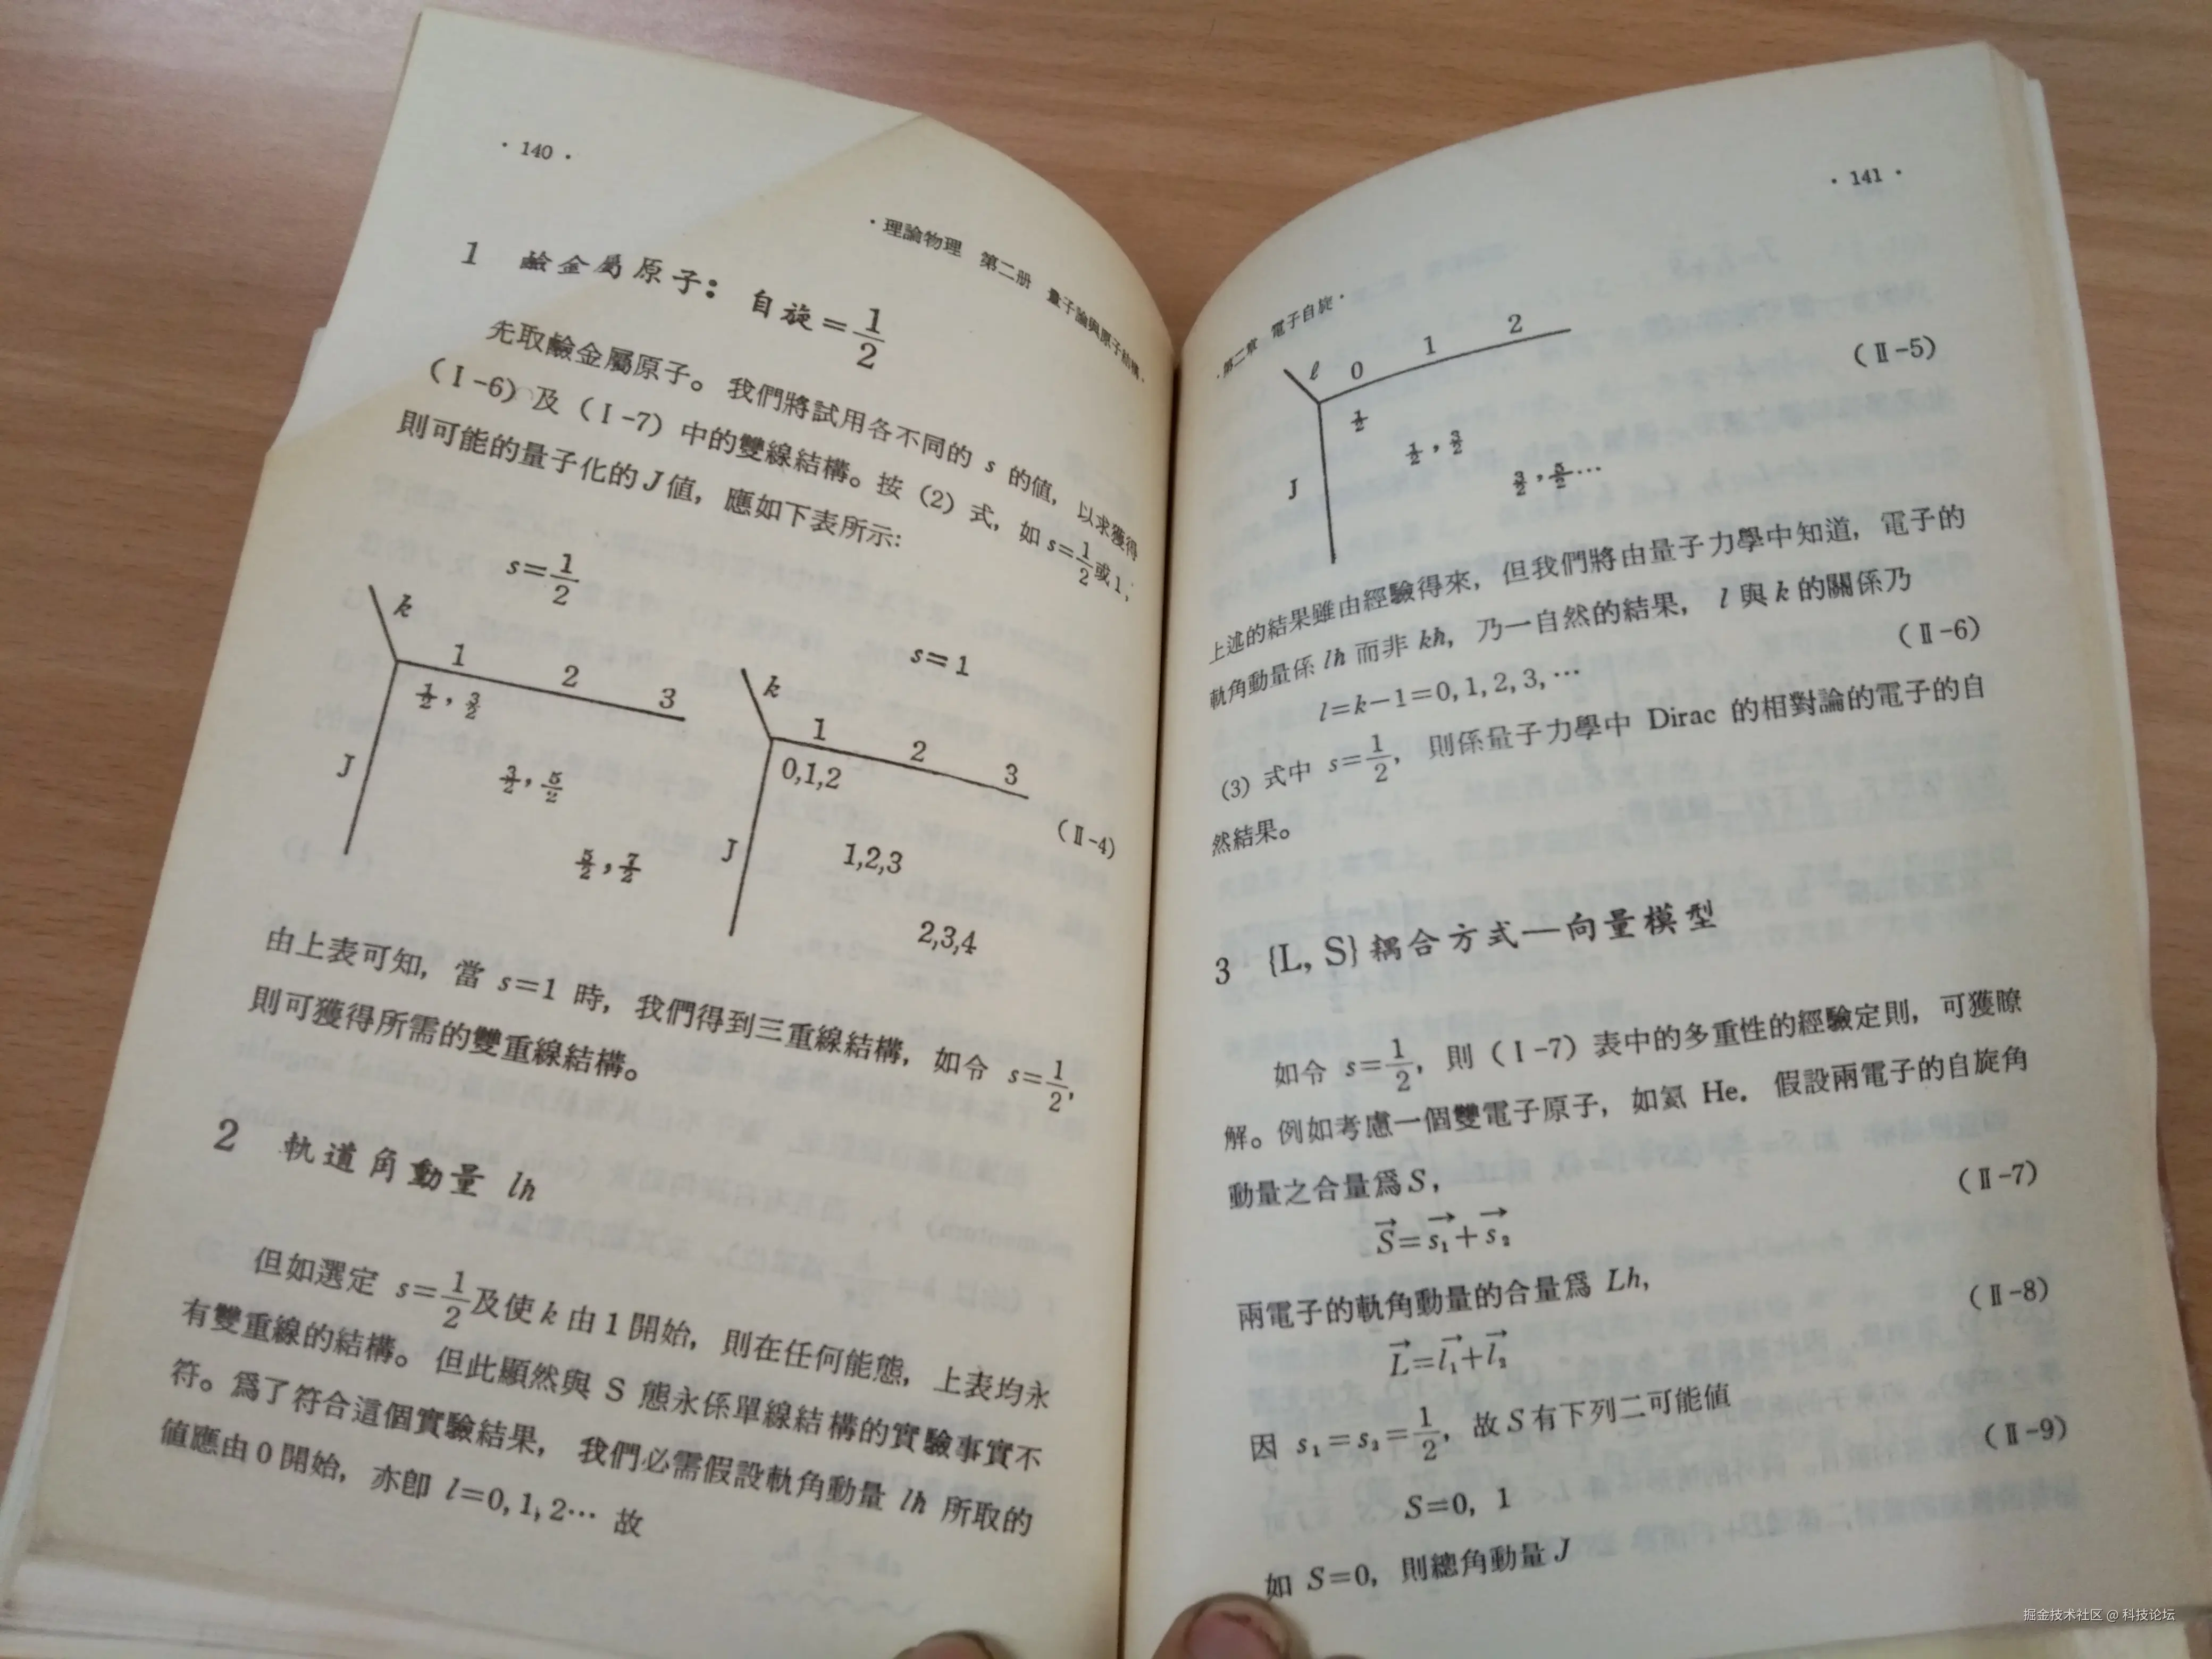 · 140 ·
·理論物理 第二册 量子論與原子結構·
1 鹼金屬原子：自旋=1/2
先取鹼金屬原子。我們將試用各不同的 s 的值，以求獲得
（Ⅰ-6）及（Ⅰ-7）中的雙線結構。按（2）式，如 s=1/2 或1，
則可能的量子化的J值，應如下表所示：
s=1/2
k 1 2 3
J
1/2，3/2
3/2，5/2
5/2，7/2
s=1
k 1 2 3
J
0,1,2
1,2,3
2,3,4
（Ⅱ-4）
由上表可知，當 s=1 時，我們得到三重線結構，如令 s=1/2，
則可獲得所需的雙重線結構。
2 軌道角動量 lħ
但如選定 s=1/2 及使 k 由 1 開始，則在任何能態，上表均永
有雙重線的結構。但此顯然與 S 態永係單線結構的實驗事實不
符。爲了符合這個實驗結果，我們必需假設軌角動量 lħ 所取的
值應由 0 開始，亦卽 l=0, 1, 2… 故
· 141 ·
·第二章 電子自旋·
l 0 1 2
J
1/2
1/2，3/2
3/2，5/2…
（Ⅱ-5）
上述的結果雖由經驗得來，但我們將由量子力學中知道，電子的
軌角動量係 lħ 而非 kħ，乃一自然的結果，l 與 k 的關係乃
l=k−1=0, 1, 2, 3, …
（Ⅱ-6）
(3) 式中 s=1/2，則係量子力學中 Dirac 的相對論的電子的自
然結果。
3 {L, S} 耦合方式—向量模型
如令 s=1/2，則（Ⅰ-7）表中的多重性的經驗定則，可獲瞭
解。例如考慮一個雙電子原子，如氦 He．假設兩電子的自旋角
動量之合量爲S，
S⃗=s⃗₁+s⃗₂
（Ⅱ-7）
兩電子的軌角動量的合量爲 Lħ，
L⃗=l⃗₁+l⃗₂
（Ⅱ-8）
因 s₁=s₂=1/2，故 S 有下列二可能値
S=0, 1
（Ⅱ-9）
如 S=0，則總角動量 J
掘金技术社区 @ 科技论坛